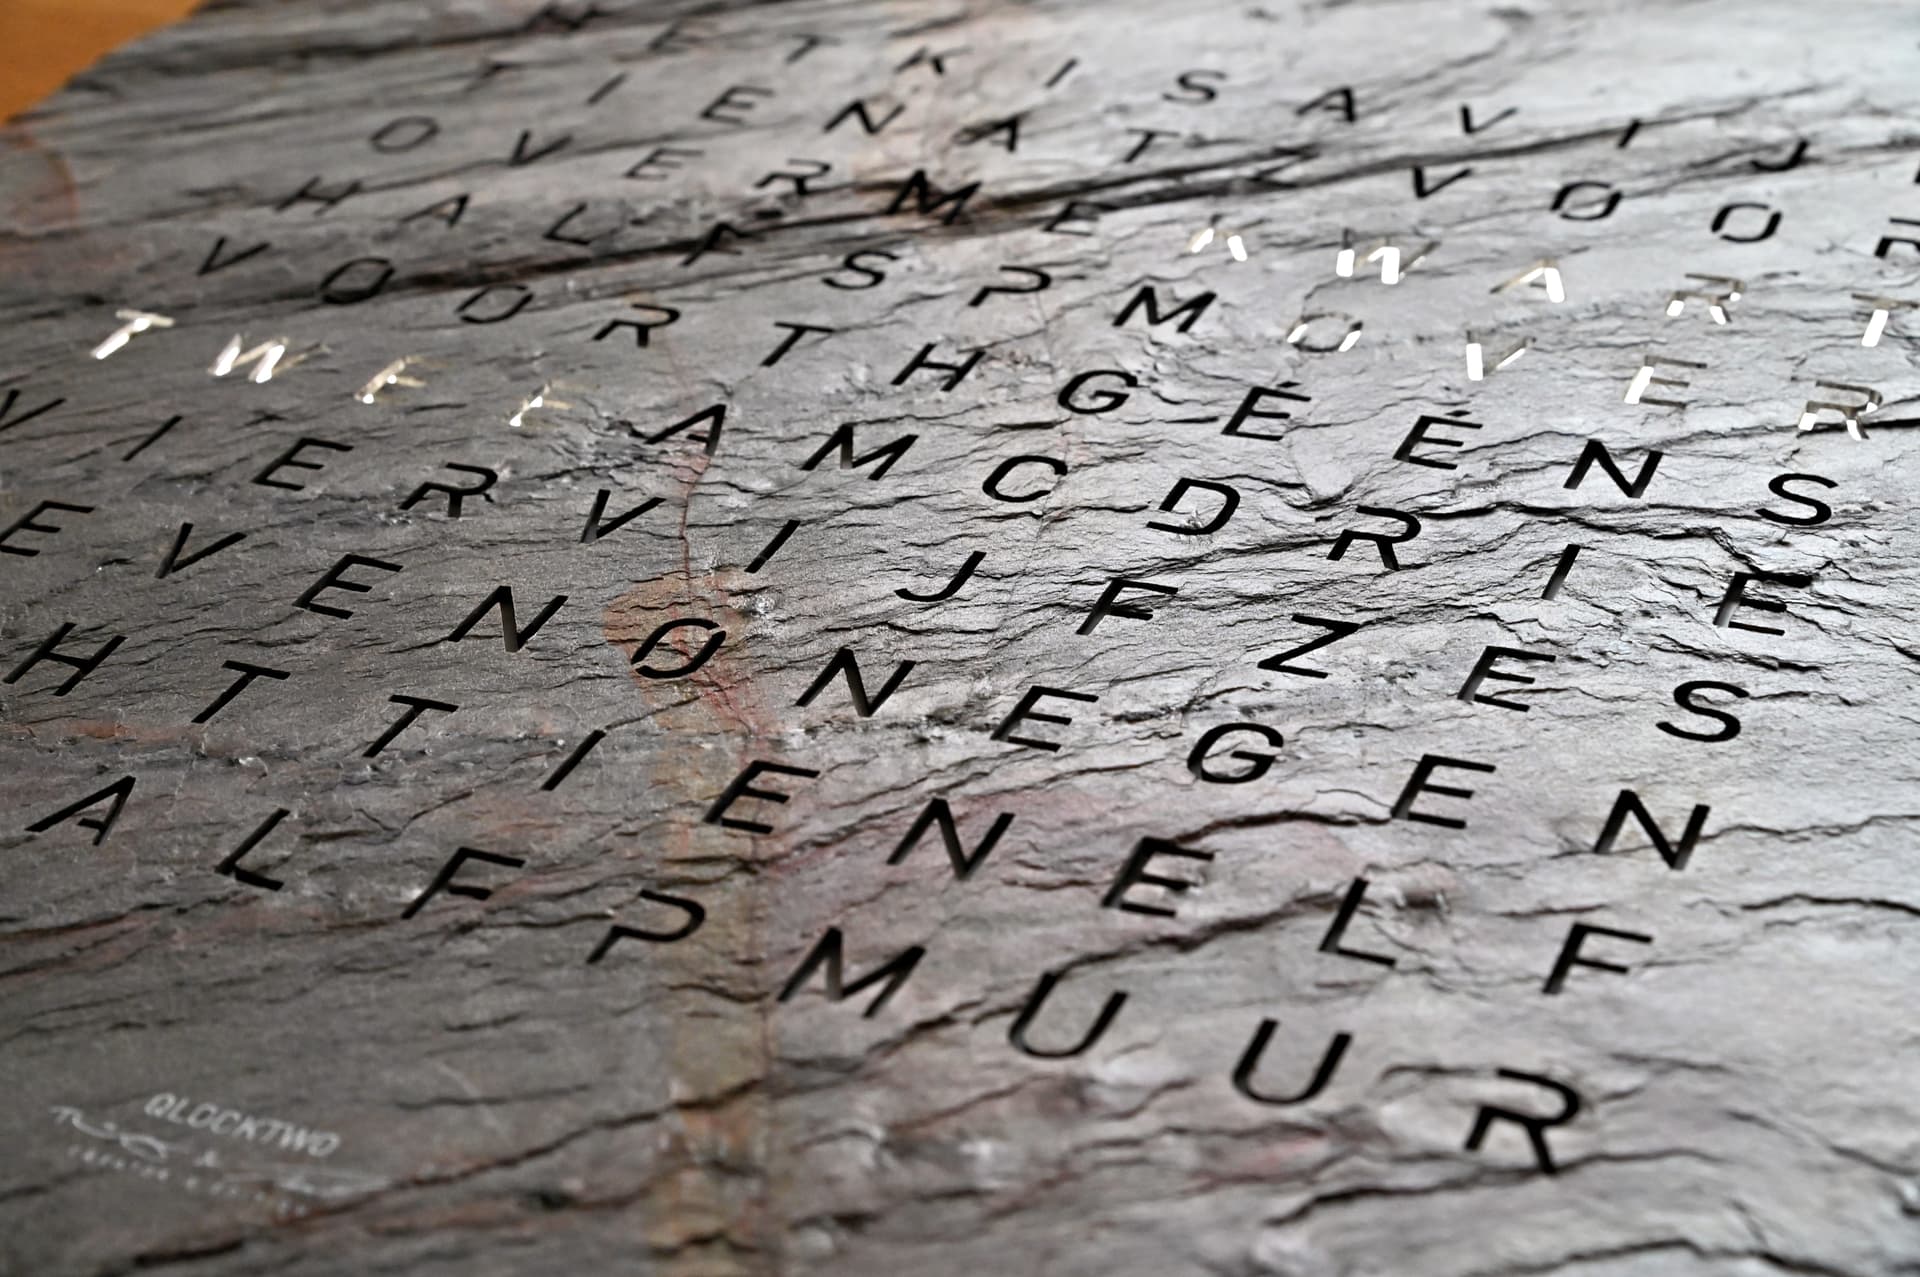 HETKISAVIJ
TIENATZVOOR
OVERMEKWART
HALFSPMOVER
VOORTHGÉÉNS
TWEEAMCDRIE
VIERVIJFZES
EVENONEGEN
HTTIENELF
ALFPMUUR
QLOCKTWO